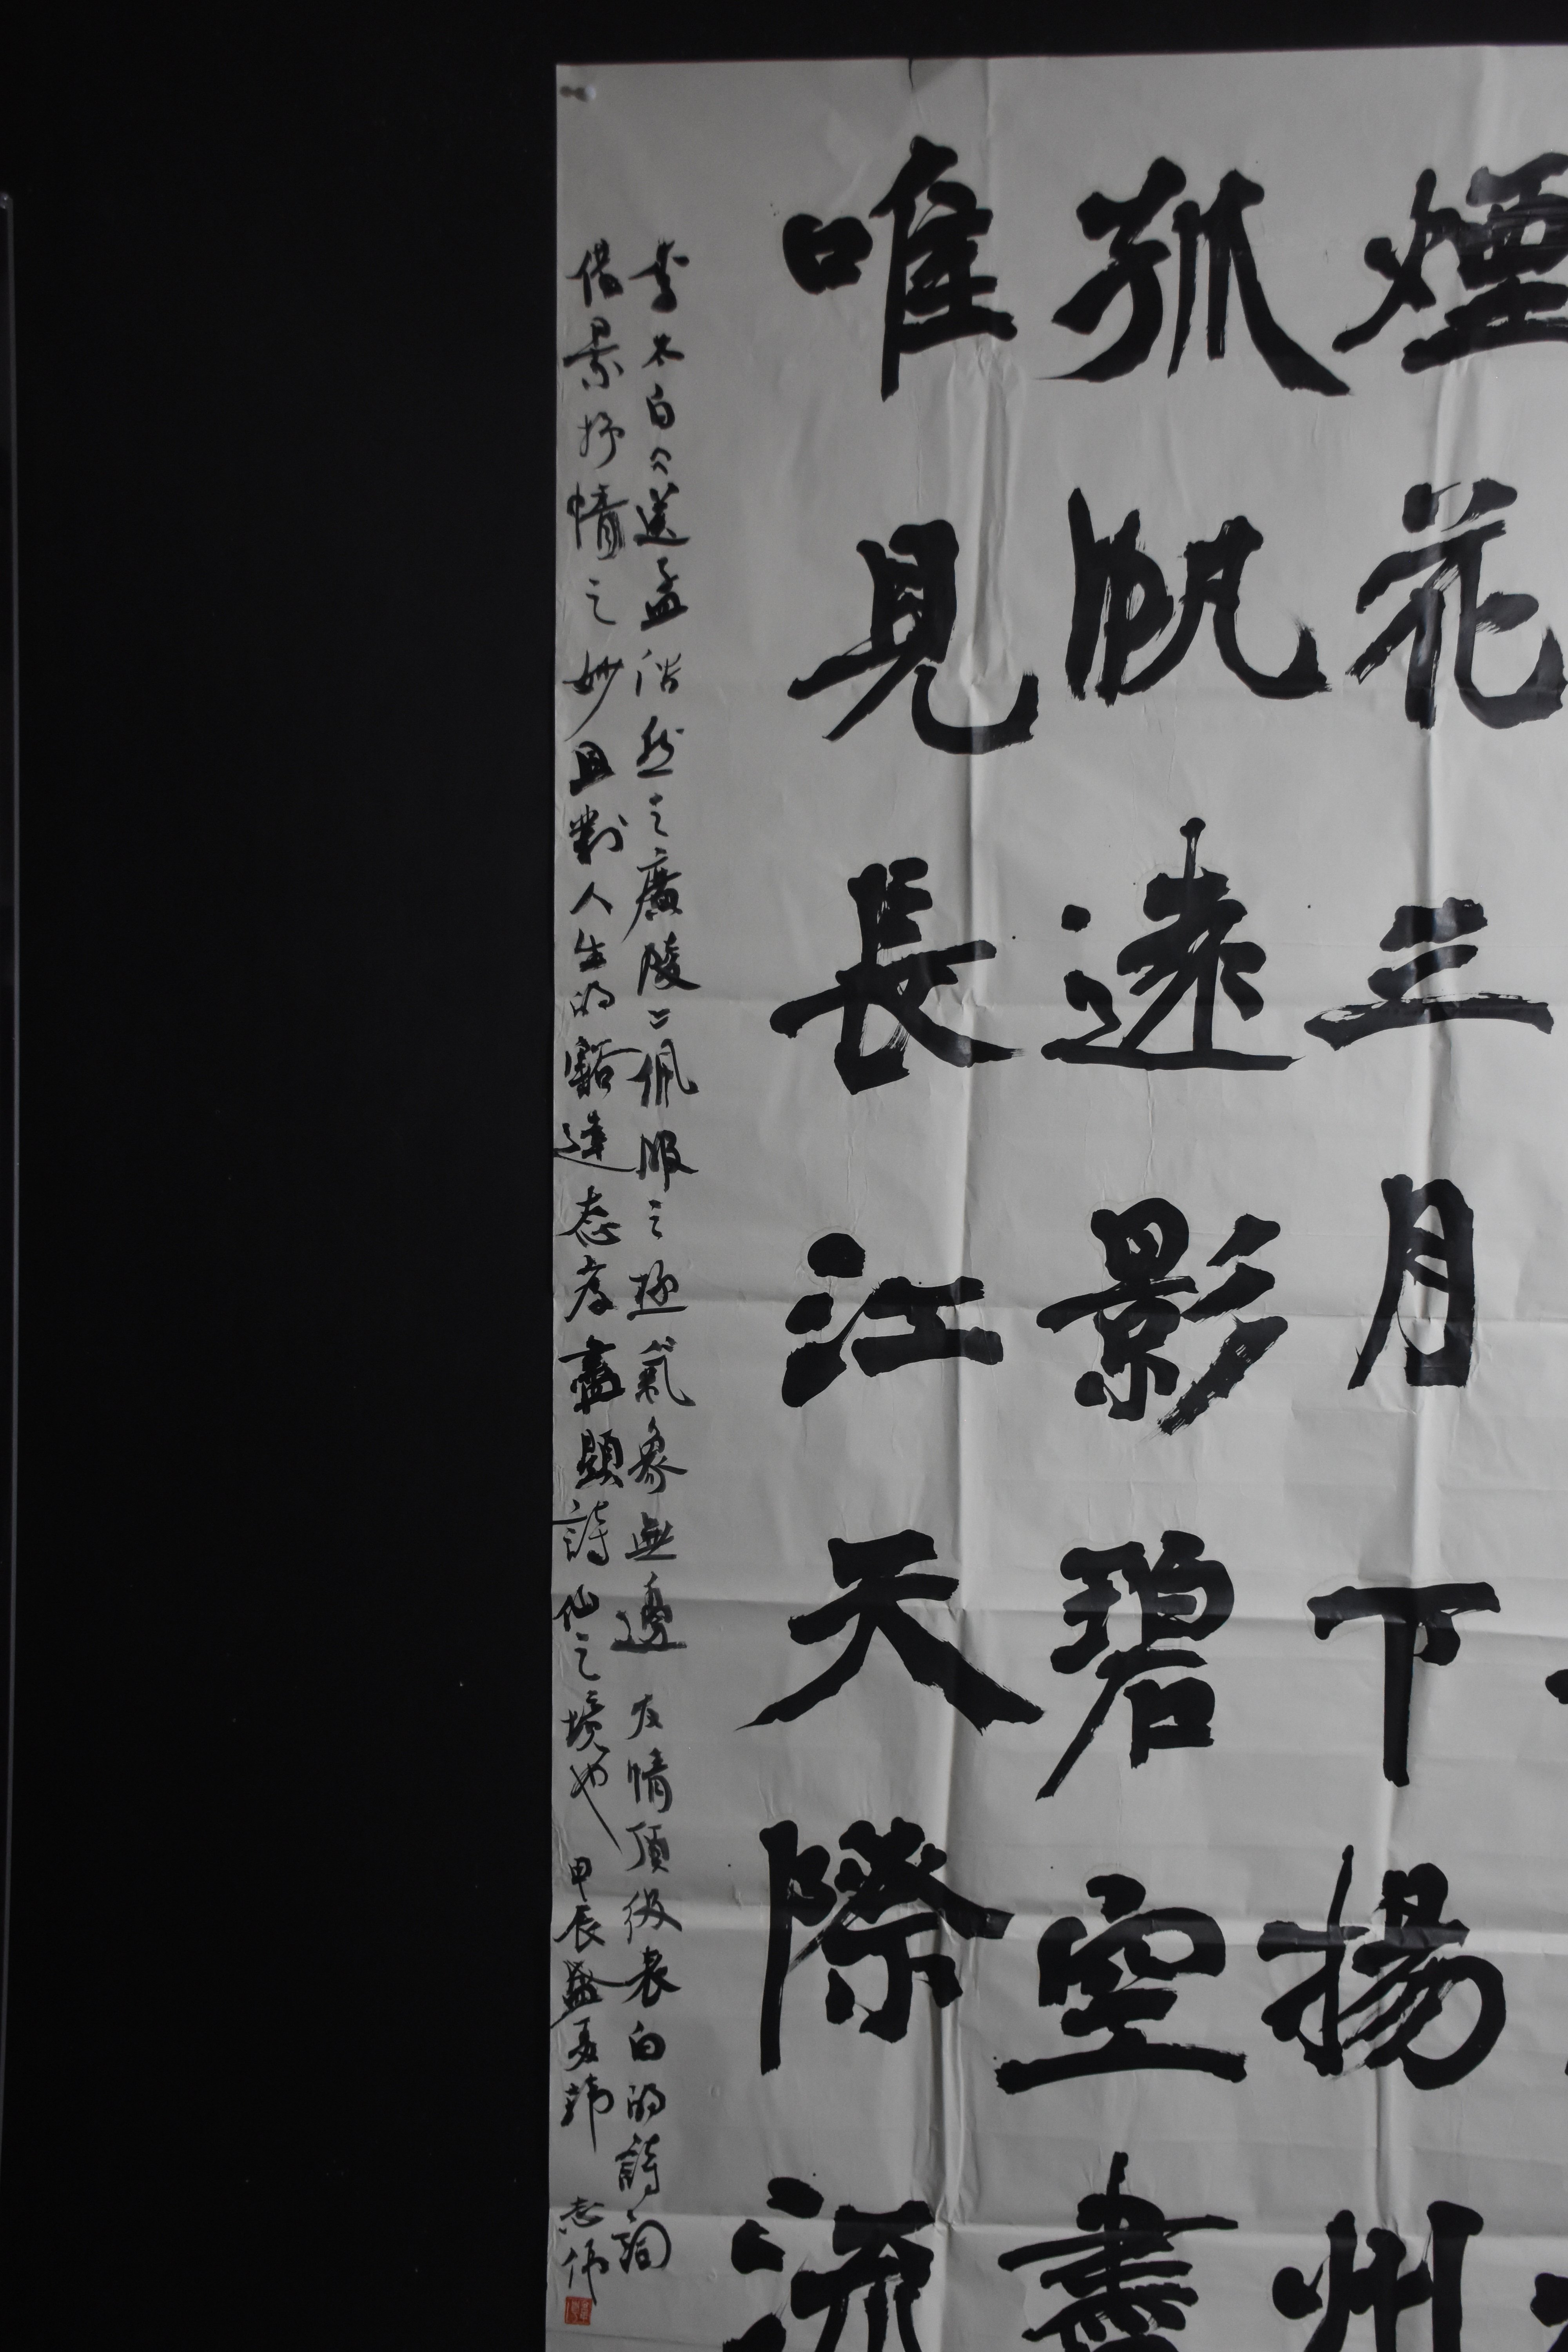 煙花三月下揚州
孤帆遠影碧空盡
唯見長江天際流
李太白〈送孟浩然之廣陵〉佩服之極氣象無邊 友情頂級表白的詩詞
借景抒情之妙且對人生的豁達态度盡顯詩仙之境也 甲辰盛夏韩志偉